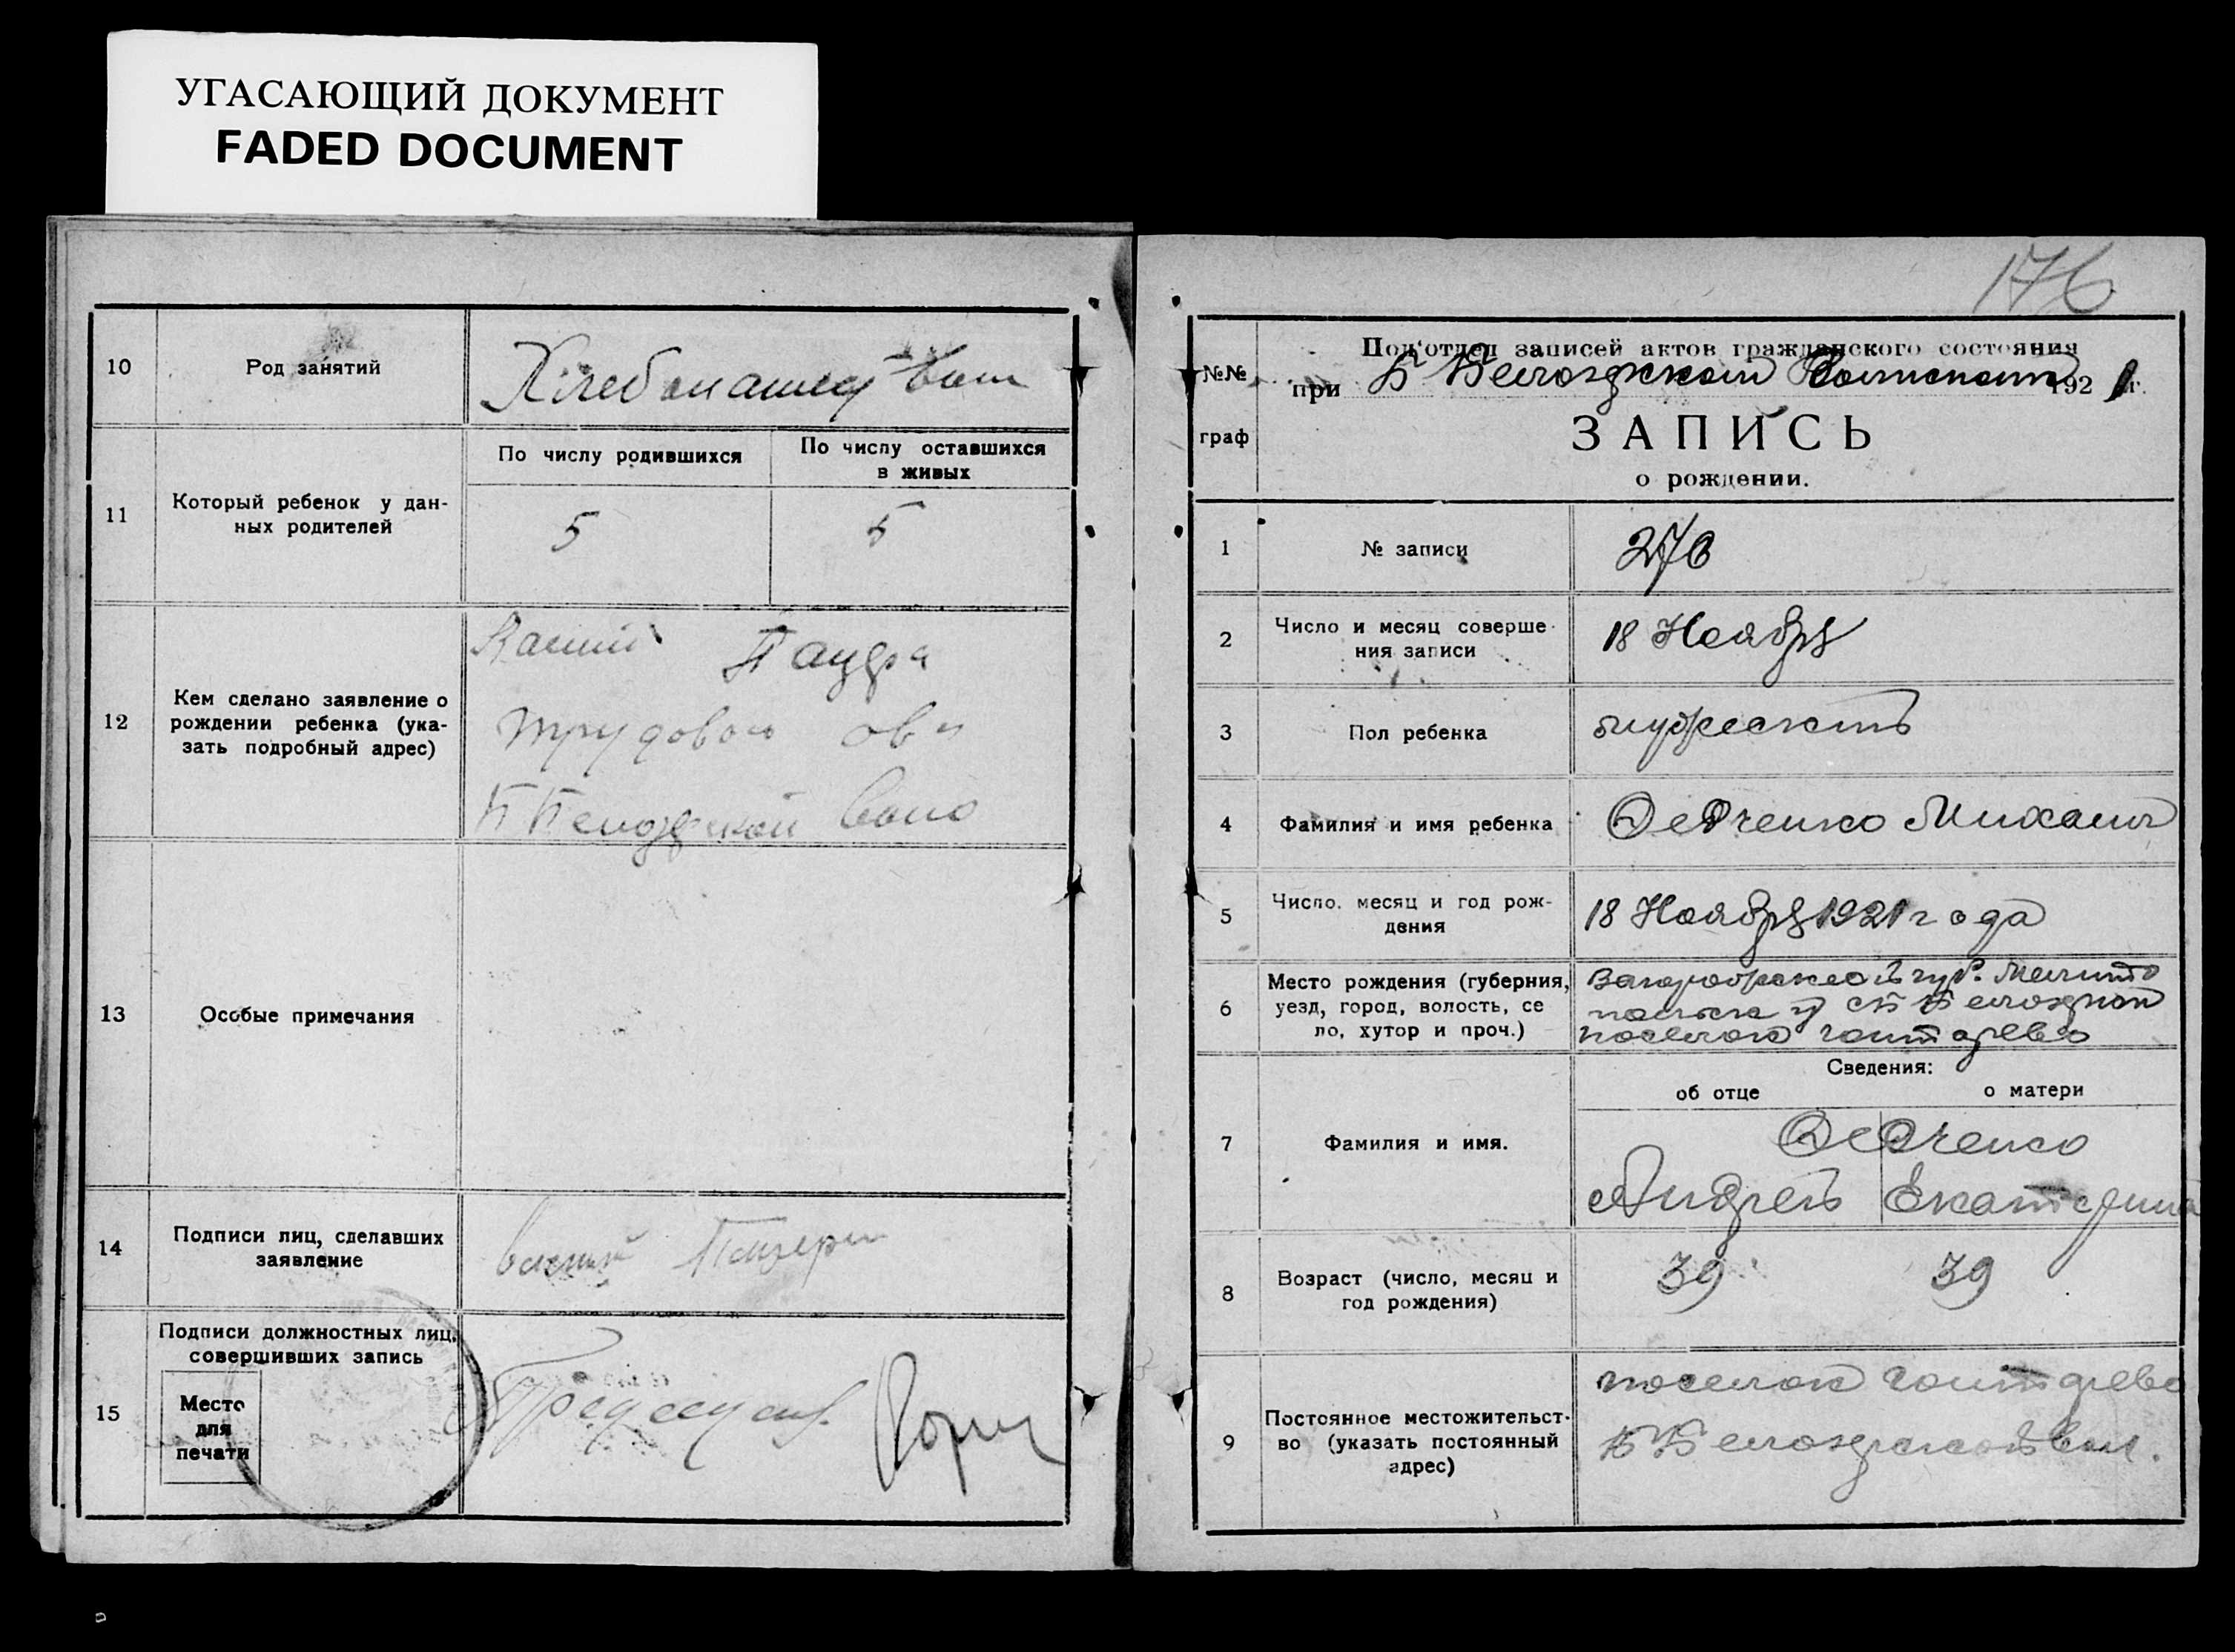 УГАСАЮЩИЙ ДОКУМЕНТ
FADED DOCUMENT
10
Род занятий
Хлебопашеством
11
Который ребенок у дан-
ных родителей
По числу родившихся
По числу оставшихся
в живых
5
5
12
Кем сделано заявление о
рождении ребенка (ука-
зать подробный адрес)
13
Особые примечания
14
Подписи лиц, сделавших
заявление
15
Подписи должностных лиц,
совершивших запись
Место
для
печати
176
№№
граф
Под'отдел записей актов гражданского состояния
при Б Белозерском 1921 г.
ЗАПИСЬ
о рождении.
1
№ записи
276
2
Число и месяц соверше-
ния записи
18 Ноября
3
Пол ребенка
4
Фамилия и имя ребенка
Федченко Михаил
5
Число, месяц и год рож-
дения
18 Ноября 1921 года
6
Место рождения (губерния,
уезд, город, волость, се
ло, хутор и проч.)
губ.
поселок
7
Фамилия и имя.
Сведения:
об отце
о матери
Федченко
Андрей
Екатерина
8
Возраст (число, месяц и
год рождения)
39
39
9
Постоянное местожительст-
во (указать постоянный
адрес)
поселок
вол.